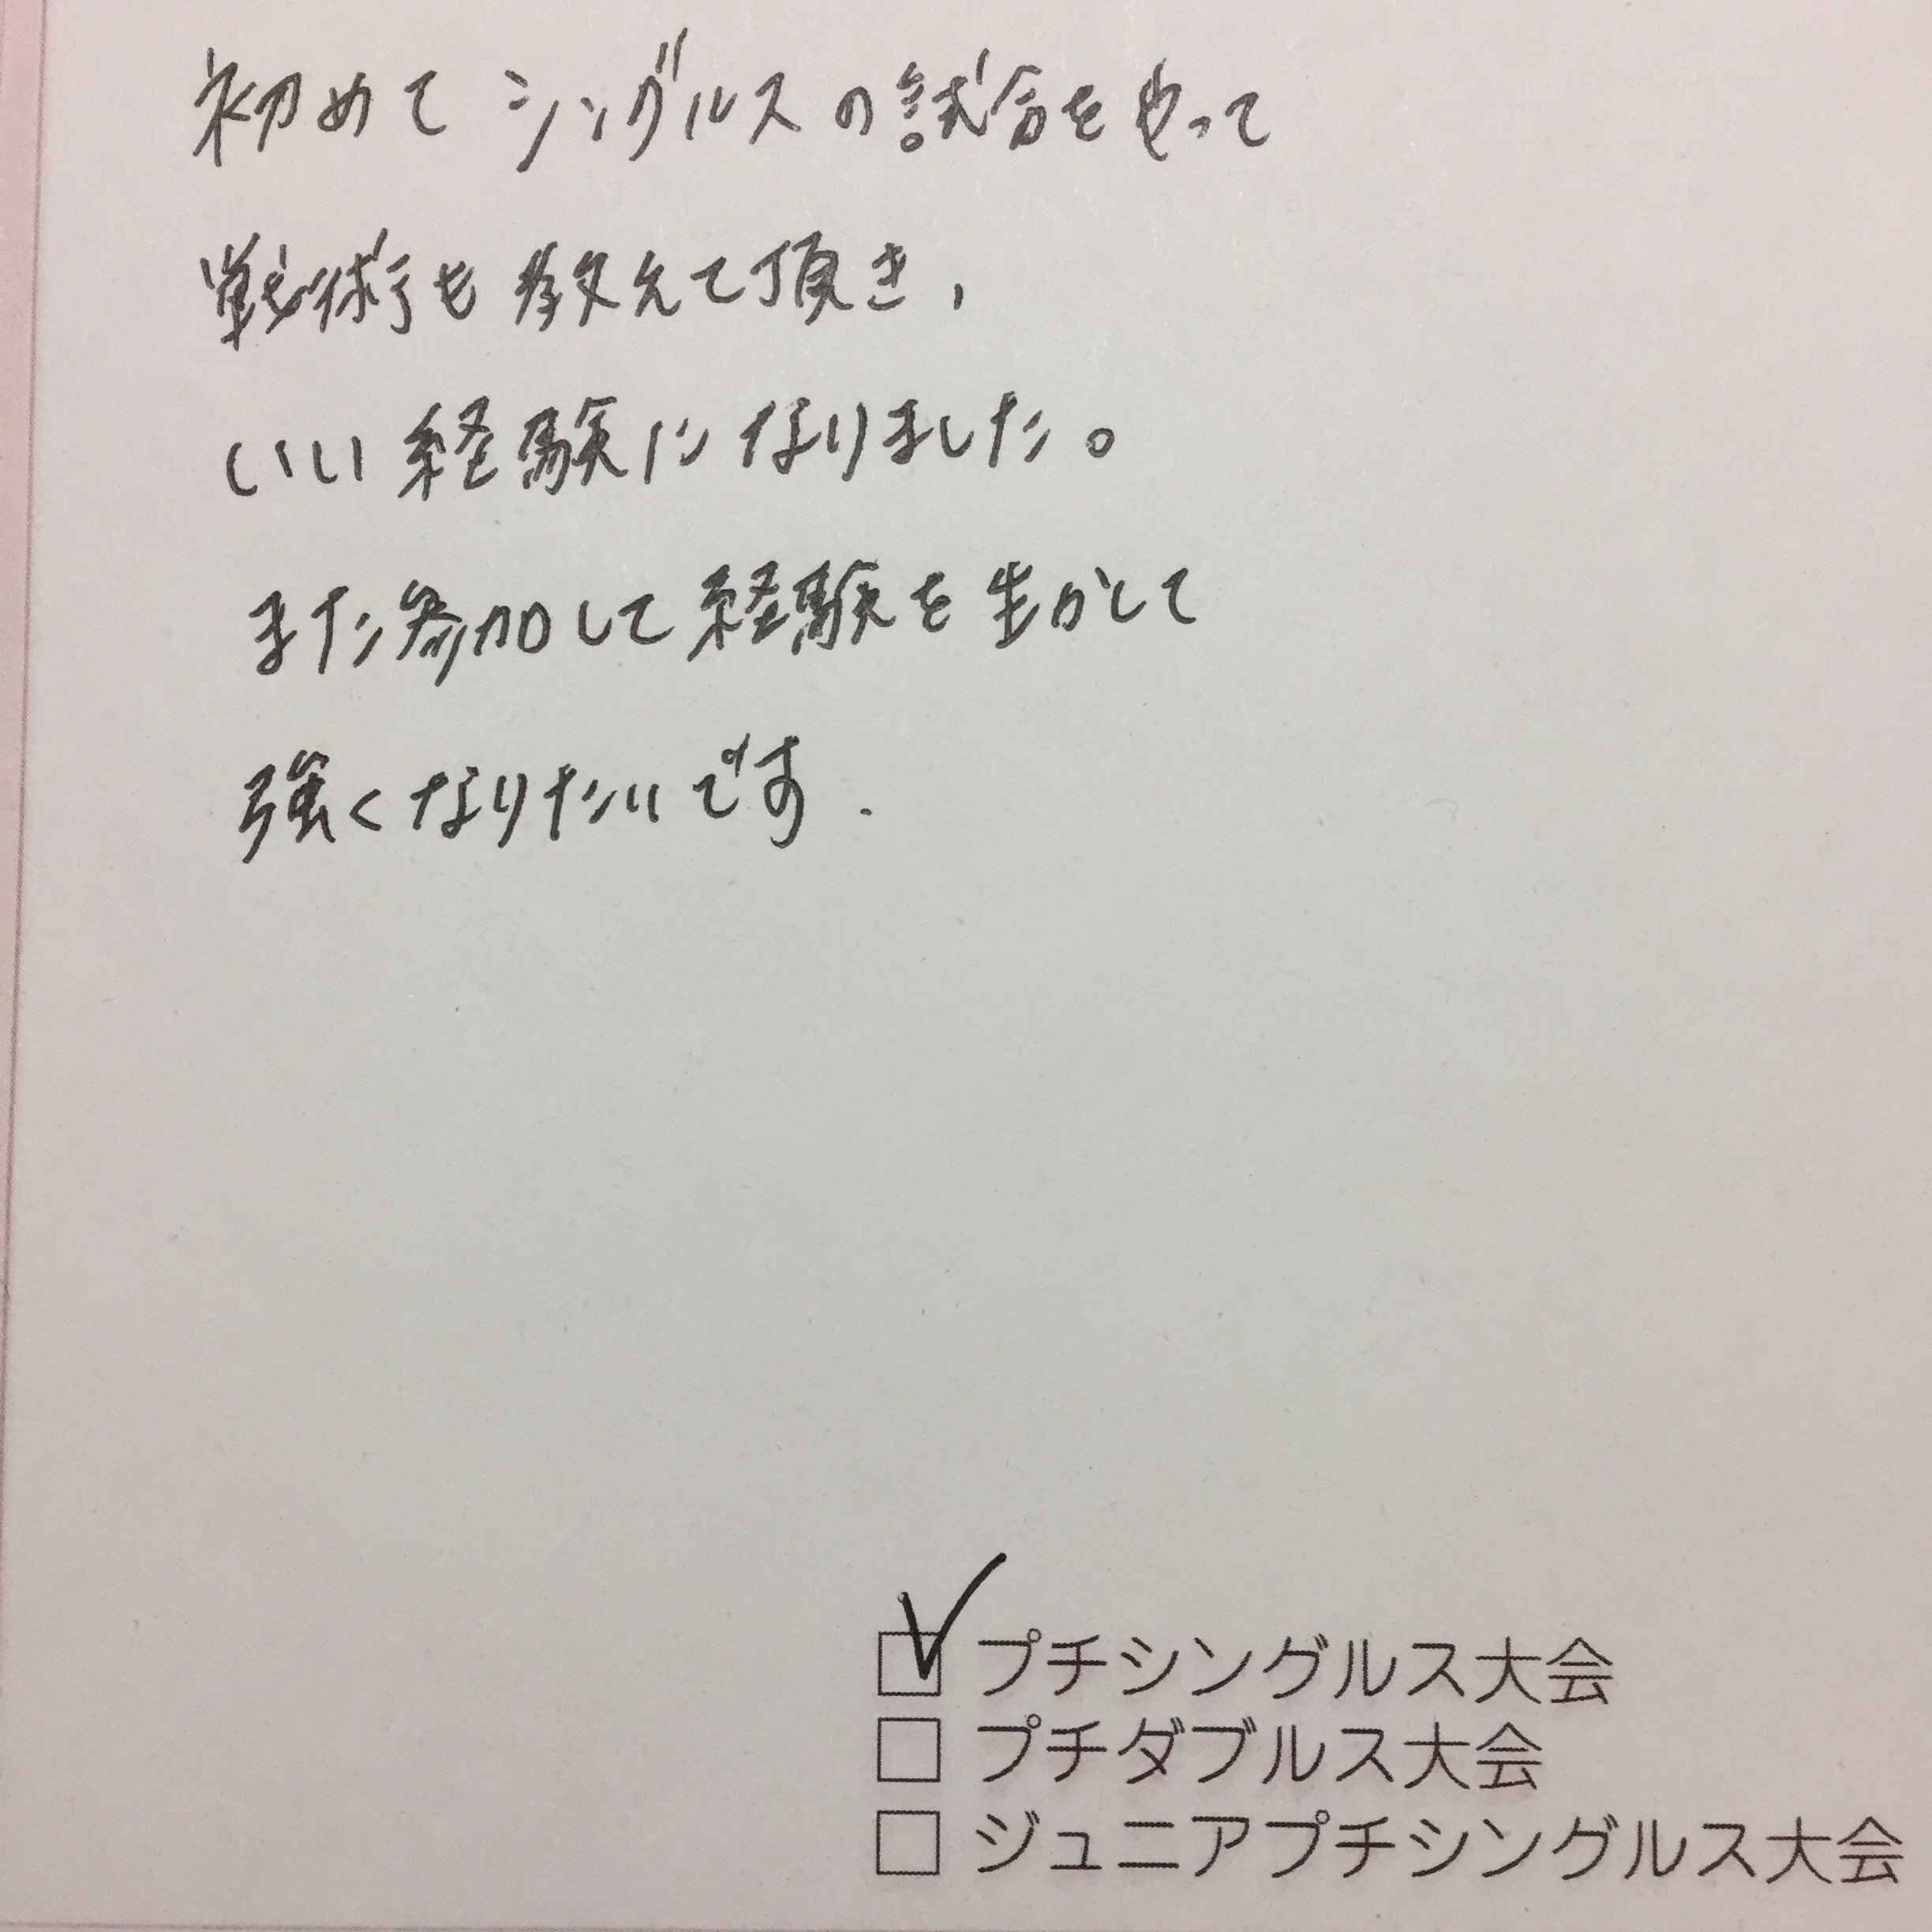 初めてシングルスの試合をやって
戦術も教えて頂き、
いい経験になりました。
また参加して経験を生かして
強くなりたいです.
☑ プチシングルス大会
□ プチダブルス大会
□ ジュニアプチシングルス大会